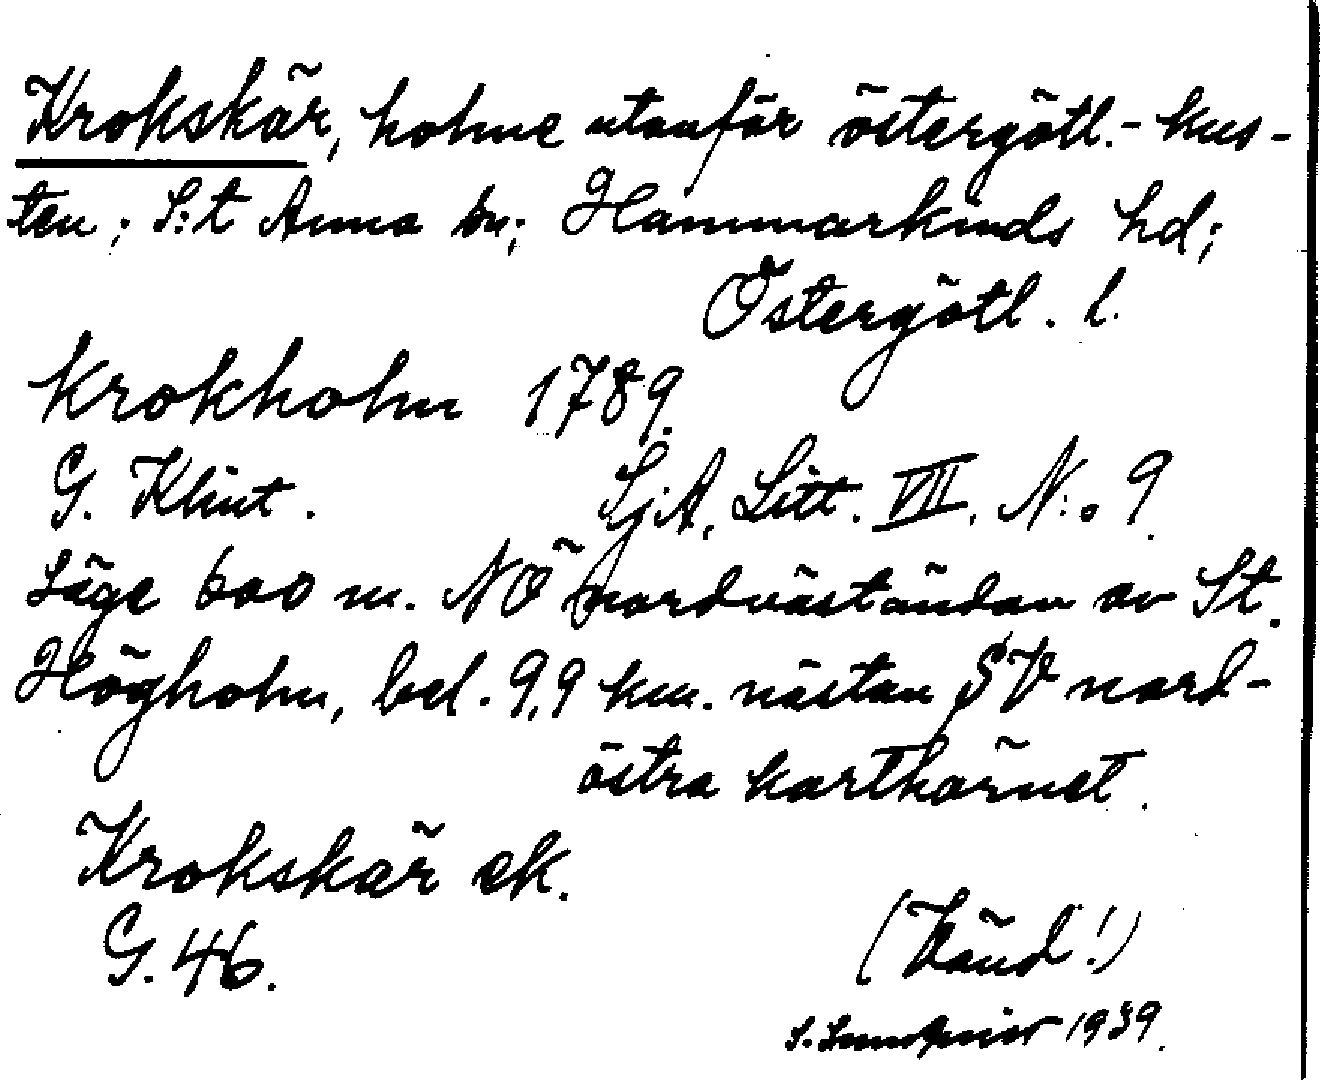 Krokskär, holme utanför östergötl.-kus-
ten; S:t Anna sn; Hammarkinds hd;
Östergötl. l.
Krokholm 1789.
G. Klint. Sj.A, Litt. VII. N:o 9.
Läge 600 m. NÖ nordväständan av St.
Högholm, bel. 9,9 km. nästan SV nord-
östra karthörnet.
Krokskär ek.
G. 46.
(Vänd!)
S. 1939.